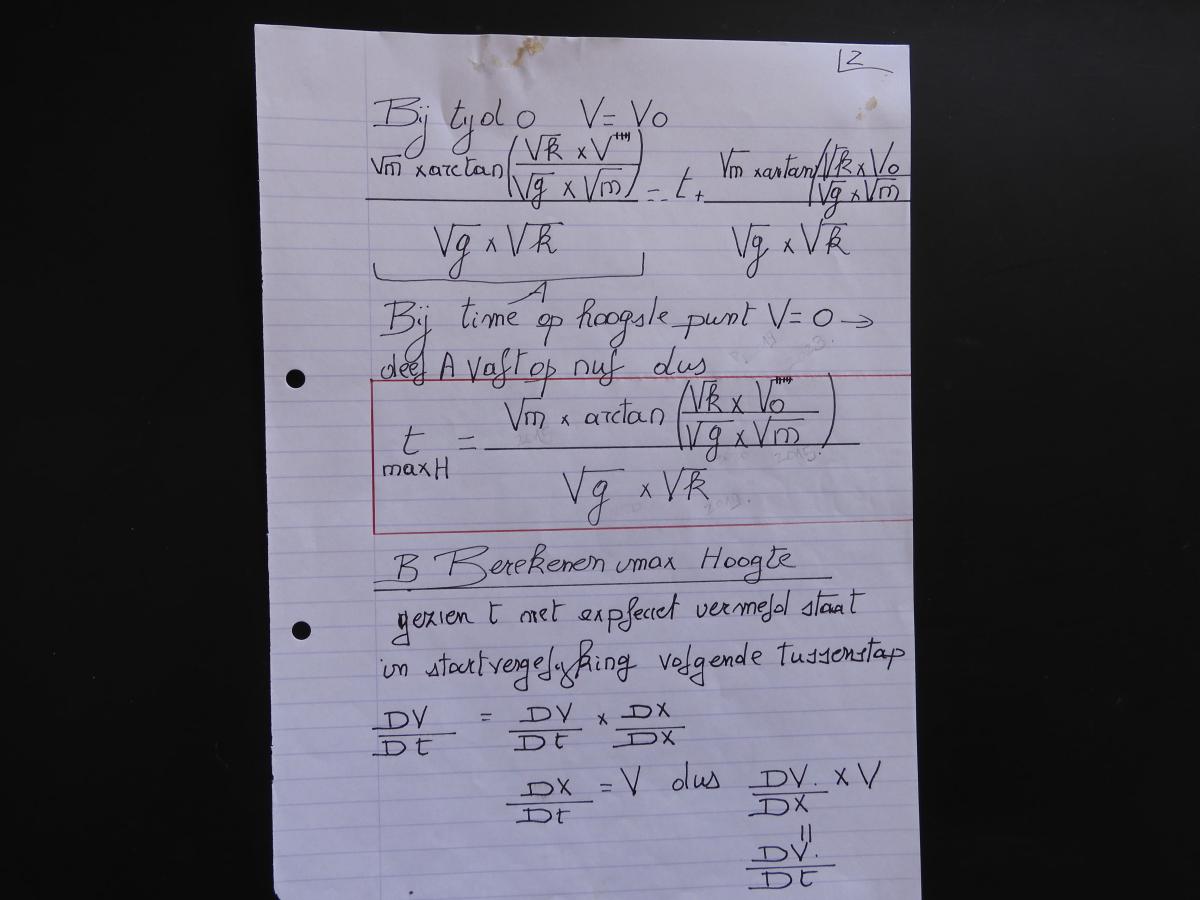 2
Bij tijd 0 V = V0
(√m × arctan((√k × V)/(√g × √m)))/(√g × √k) = t + (√m × artan((√k × V0)/(√g × √m)))/(√g × √k)
A
Bij time op hoogste punt V = 0 →
deel A valt op nul dus
t maxH = (√m × arctan((√k × V0)/(√g × √m)))/(√g × √k)
B Berekenen max Hoogte
gezien t niet expleciet vermeld staat
in startvergelijking volgende tussenstap
DV/Dt = DV/Dt × DX/DX
DX/Dt = V dus DV/DX × V
=
DV/Dt